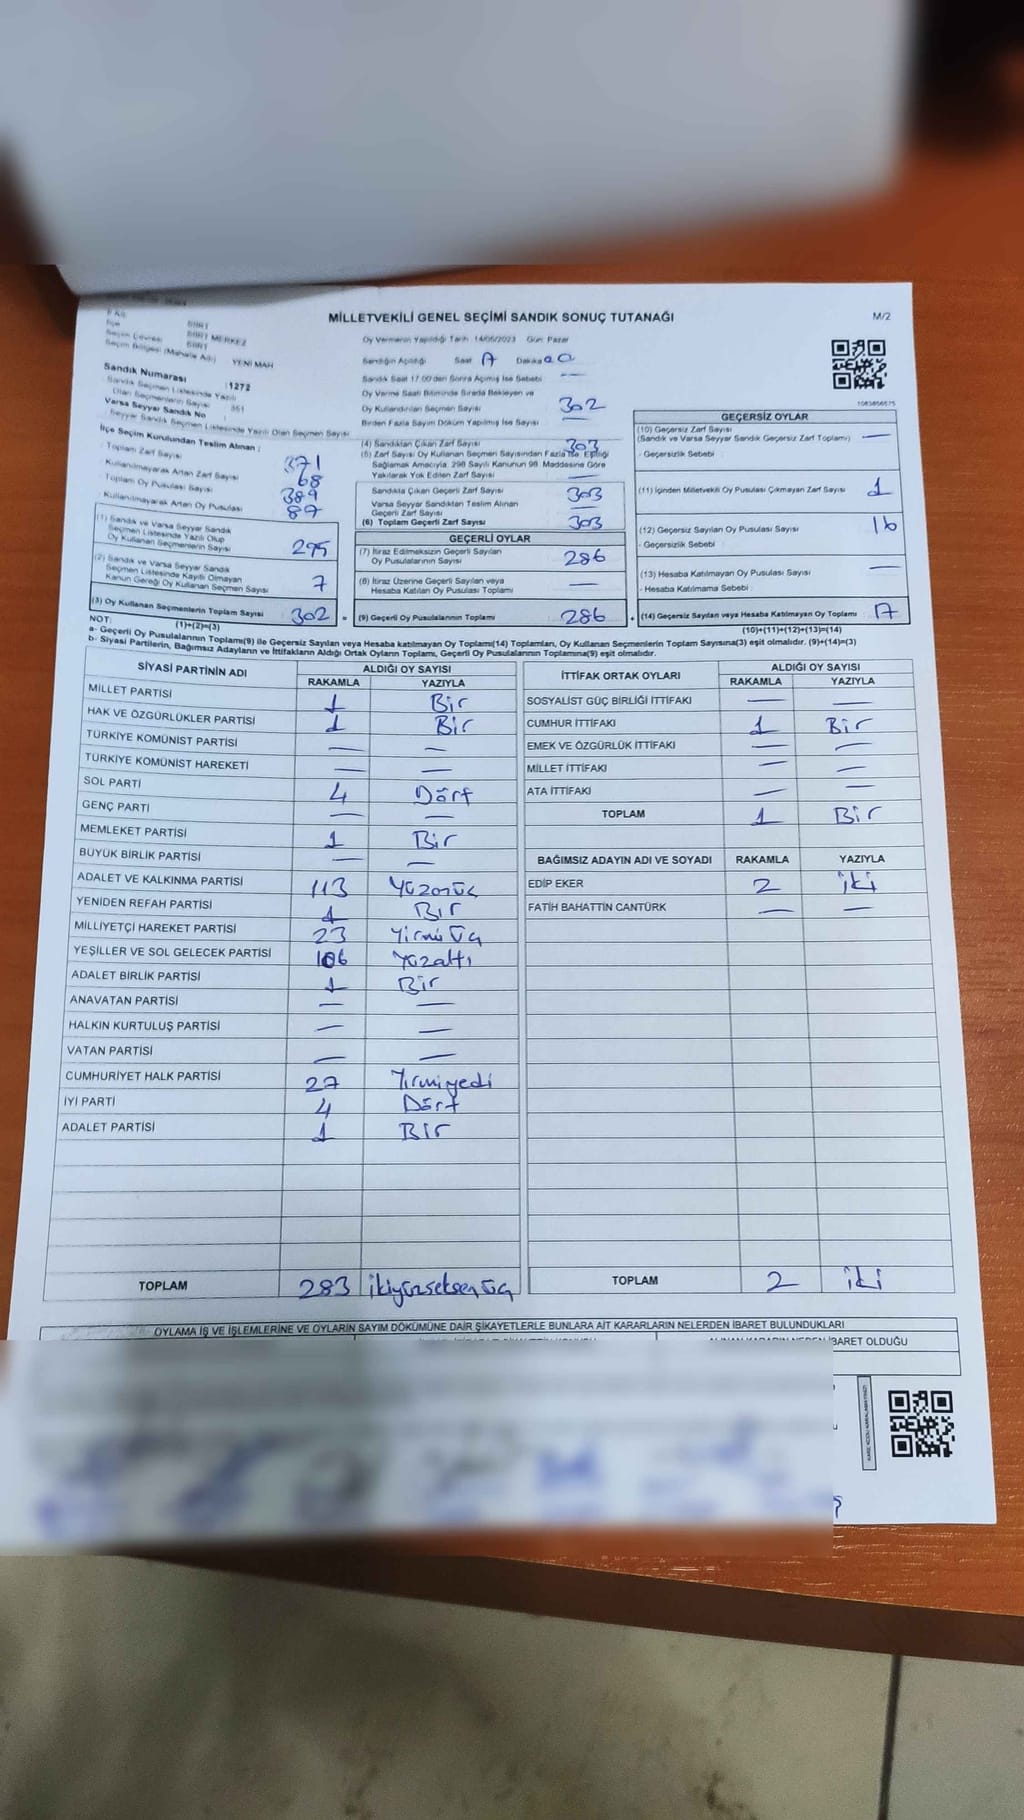 MİLLETVEKİLİ GENEL SEÇİMİ SANDIK SONUÇ TUTANAĞI
M/2
İlçe SİİRT MERKEZ
Seçim Çevresi SİİRT
Seçim Bölgesi (Mahalle Adı) YENİ MAH
Sandık Numarası :1272
Sandık Seçmen Listesinde Yazılı
Olan Seçmenlerin Sayısı 351
Varsa Seyyar Sandık No :
Seyyar Sandık Seçmen Listesinde Yazılı Olan Seçmen Sayısı
İlçe Seçim Kurulundan Teslim Alınan :
Toplam Zarf Sayısı 371
Kullanılmayarak Artan Zarf Sayısı 68
Toplam Oy Pusulası Sayısı 389
Kullanılmayarak Artan Oy Pusulası 87
(1) Sandık ve Varsa Seyyar Sandık
Seçmen Listesinde Yazılı Olup
Oy Kullanan Seçmenlerin Sayısı 295
(2) Sandık ve Varsa Seyyar Sandık
Seçmen Listesinde Kayıtlı Olmayan
Kanun Gereği Oy Kullanan Seçmen Sayısı 7
(3) Oy Kullanan Seçmenlerin Toplam Sayısı 302 =
(1)+(2)=(3)
Oy Vermenin Yapıldığı Tarih 14/05/2023 Gün: Pazar
Sandığın Açıldığı Saat 17 Dakika 00
Sandık Saat 17.00'den Sonra Açılmış İse Sebebi —
Oy Verme Saati Bitiminde Sırada Bekleyen ve
Oy Kullandırılan Seçmen Sayısı 302
Birden Fazla Sayım Döküm Yapılmış İse Sayısı —
(4) Sandıktan Çıkan Zarf Sayısı 303
(5) Zarf Sayısı Oy Kullanan Seçmen Sayısından Fazla İse, Eşitliği
Sağlamak Amacıyla, 298 Sayılı Kanunun 98. Maddesine Göre
Yakılarak Yok Edilen Zarf Sayısı —
Sandıkta Çıkan Geçerli Zarf Sayısı 303
Varsa Seyyar Sandıktan Teslim Alınan
Geçerli Zarf Sayısı —
(6) Toplam Geçerli Zarf Sayısı 303
GEÇERLİ OYLAR
(7) İtiraz Edilmeksizin Geçerli Sayılan
Oy Pusulalarının Sayısı 286
(8) İtiraz Üzerine Geçerli Sayılan veya
Hesaba Katılan Oy Pusulası Toplamı —
(9) Geçerli Oy Pusulalarının Toplamı 286 +
1083856575
GEÇERSİZ OYLAR
(10) Geçersiz Zarf Sayısı
(Sandık ve Varsa Seyyar Sandık Geçersiz Zarf Toplamı) —
- Geçersizlik Sebebi :
(11) İçinden Milletvekili Oy Pusulası Çıkmayan Zarf Sayısı 1
(12) Geçersiz Sayılan Oy Pusulası Sayısı 16
- Geçersizlik Sebebi
(13) Hesaba Katılmayan Oy Pusulası Sayısı —
- Hesaba Katılmama Sebebi :
(14) Geçersiz Sayılan veya Hesaba Katılmayan Oy Toplamı 17
(10)+(11)+(12)+(13)=(14)
NOT:
a- Geçerli Oy Pusulalarının Toplamı(9) ile Geçersiz Sayılan veya Hesaba katılmayan Oy Toplamı(14) Toplamları, Oy Kullanan Seçmenlerin Toplam Sayısına(3) eşit olmalıdır. (9)+(14)=(3)
b- Siyasi Partilerin, Bağımsız Adayların ve İttifakların Aldığı Ortak Oyların Toplamı, Geçerli Oy Pusulalarının Toplamına(9) eşit olmalıdır.
SİYASİ PARTİNİN ADI ALDIĞI OY SAYISI
RAKAMLA YAZIYLA
MİLLET PARTİSİ 1 Bir
HAK VE ÖZGÜRLÜKLER PARTİSİ 1 Bir
TÜRKİYE KOMÜNİST PARTİSİ — —
TÜRKİYE KOMÜNİST HAREKETİ — —
SOL PARTİ 4 Dört
GENÇ PARTİ — —
MEMLEKET PARTİSİ 1 Bir
BÜYÜK BİRLİK PARTİSİ — —
ADALET VE KALKINMA PARTİSİ 113 Yüzonüç
YENİDEN REFAH PARTİSİ 1 Bir
MİLLİYETÇİ HAREKET PARTİSİ 23 Yirmi üç
YEŞİLLER VE SOL GELECEK PARTİSİ 106 Yüzaltı
ADALET BİRLİK PARTİSİ 1 Bir
ANAVATAN PARTİSİ — —
HALKIN KURTULUŞ PARTİSİ — —
VATAN PARTİSİ — —
CUMHURİYET HALK PARTİSİ 27 Yirmiyedi
İYİ PARTİ 4 Dört
ADALET PARTİSİ 1 Bir
TOPLAM 283 ikiyüzseksenüç
İTTİFAK ORTAK OYLARI ALDIĞI OY SAYISI
RAKAMLA YAZIYLA
SOSYALİST GÜÇ BİRLİĞİ İTTİFAKI — —
CUMHUR İTTİFAKI 1 Bir
EMEK VE ÖZGÜRLÜK İTTİFAKI — —
MİLLET İTTİFAKI — —
ATA İTTİFAKI — —
TOPLAM 1 Bir
BAĞIMSIZ ADAYIN ADI VE SOYADI RAKAMLA YAZIYLA
EDİP EKER 2 iki
FATİH BAHATTİN CANTÜRK — —
TOPLAM 2 iki
OYLAMA İŞ VE İŞLEMLERİNE VE OYLARIN SAYIM DÖKÜMÜNE DAİR ŞİKAYETLERLE BUNLARA AİT KARARLARIN NELERDEN İBARET BULUNDUKLARI
ALINAN KARARIN NEDEN İBARET OLDUĞU